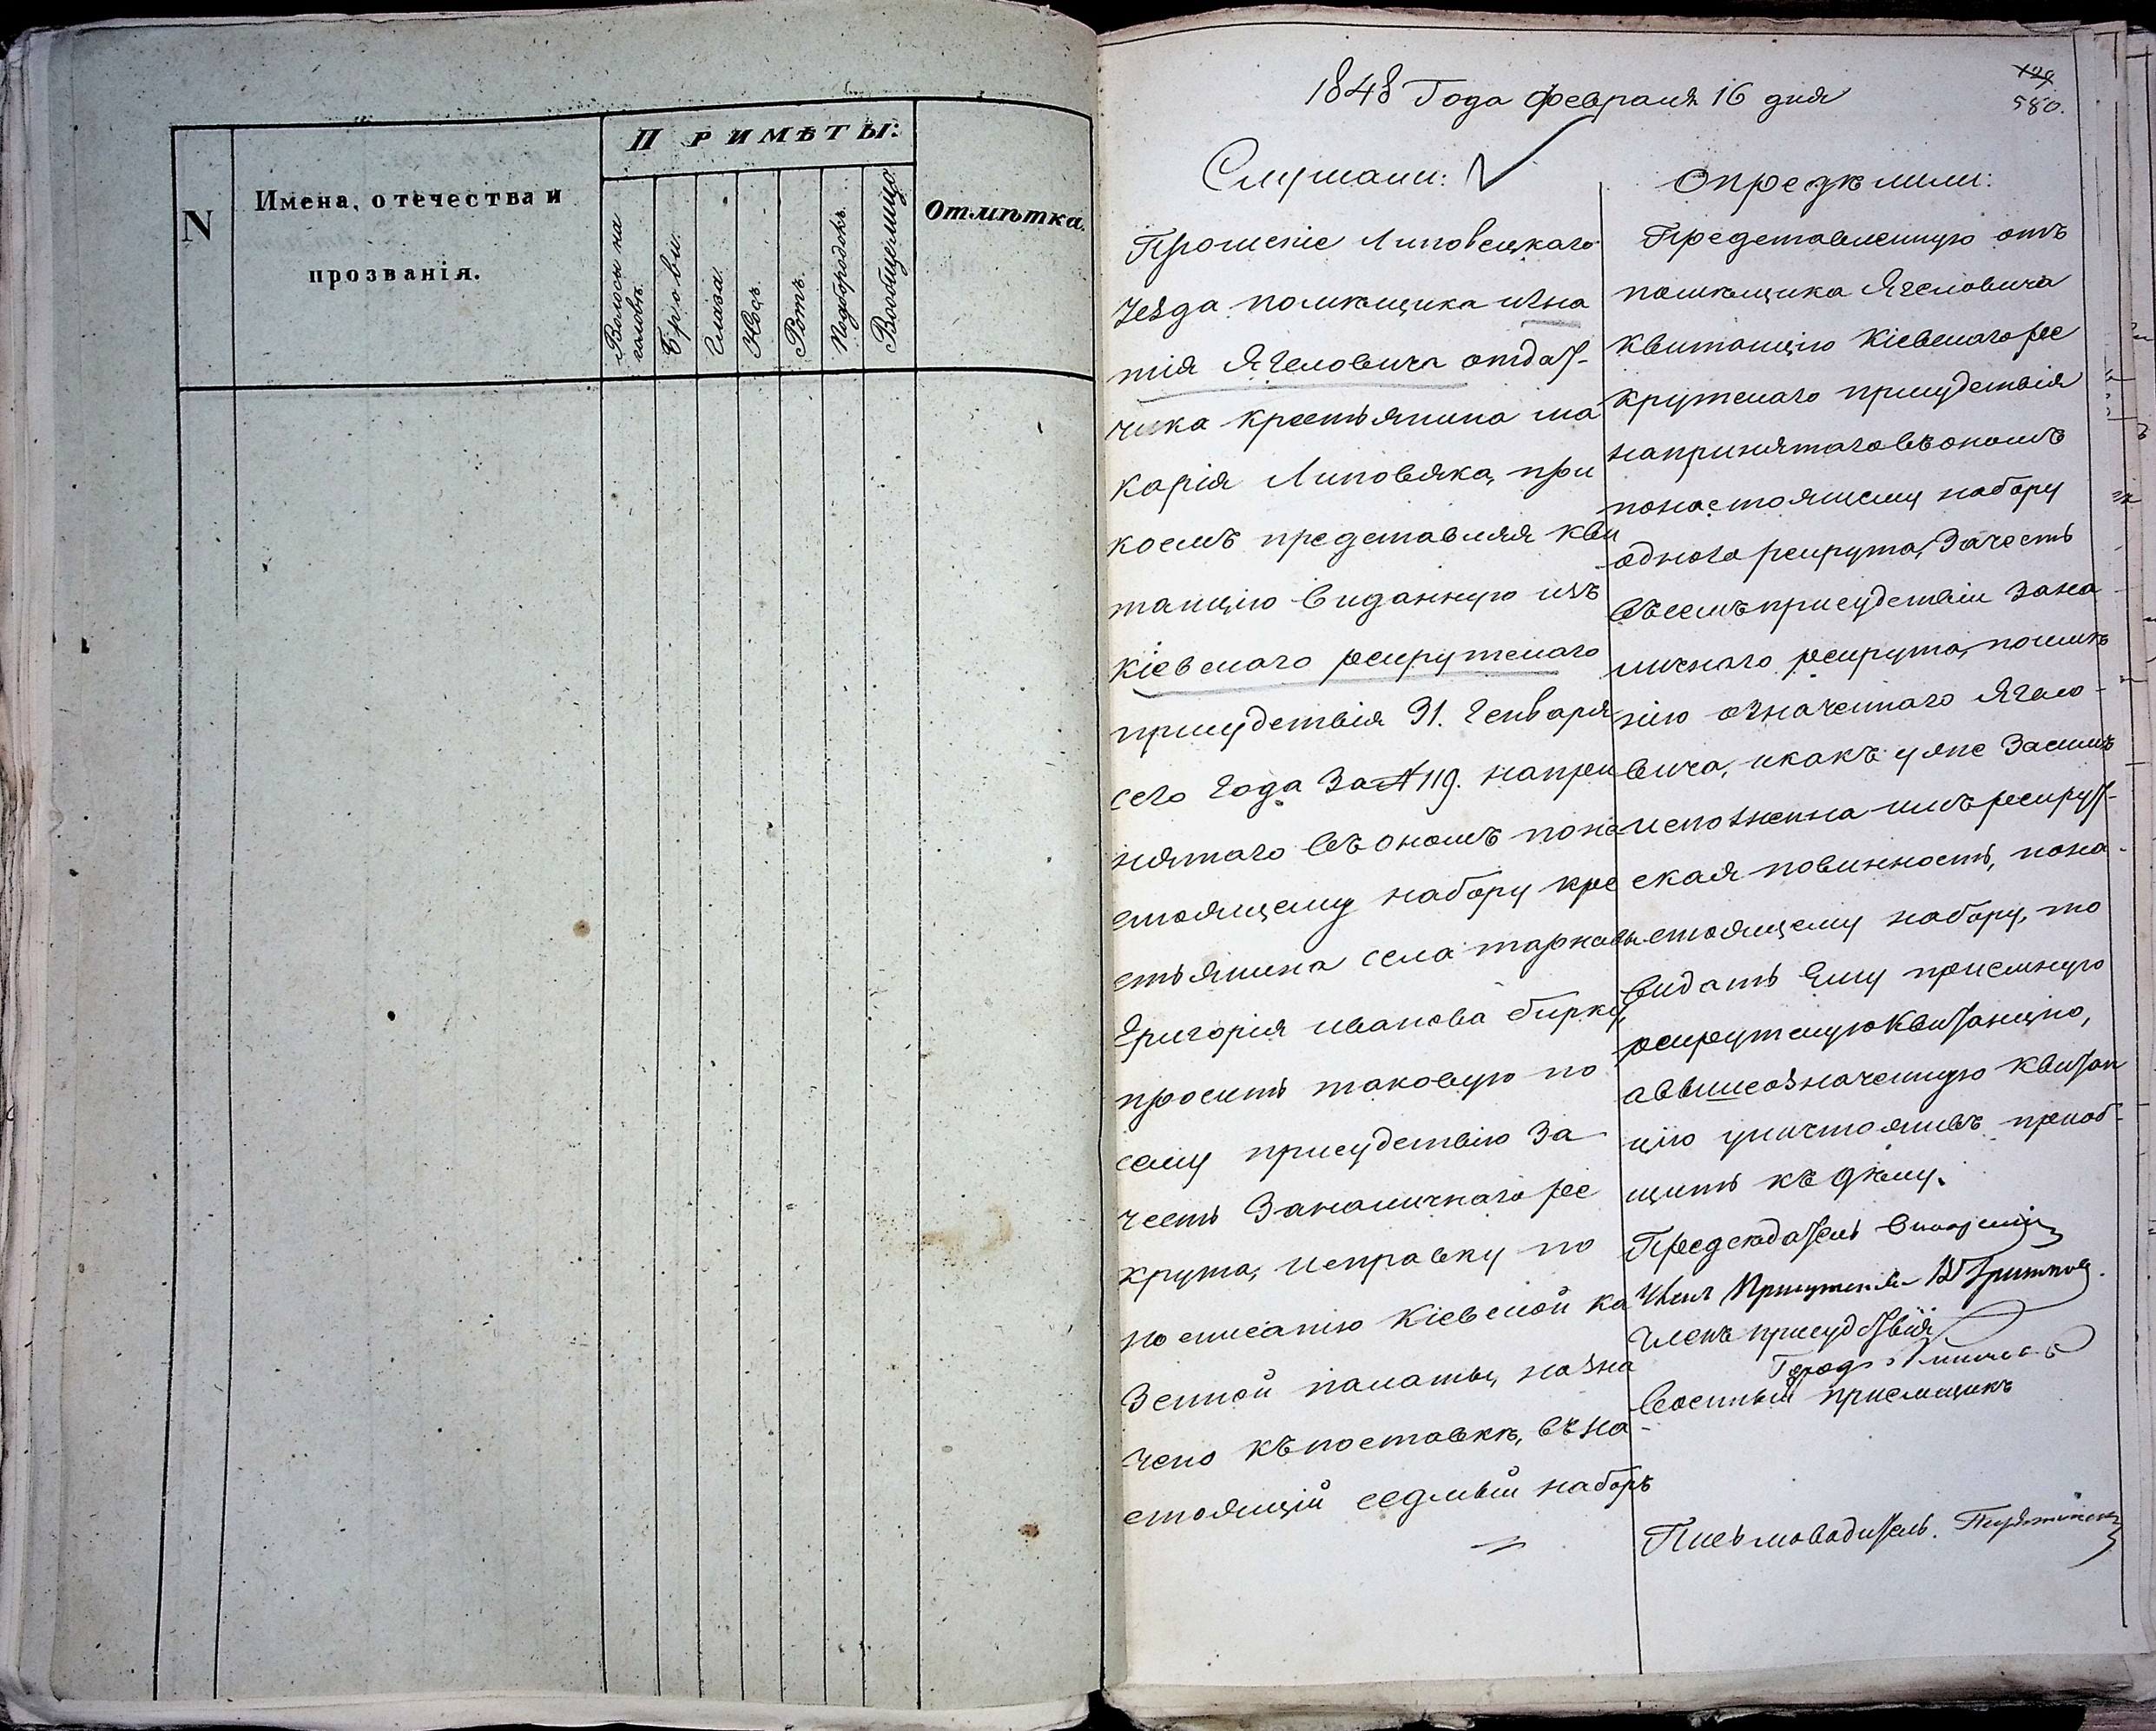 N
Имена, отечества и
прозванія.
ПРИМѢТЫ:
Волосы на
головѣ.
Брови.
Глаза.
Носъ.
Ротъ.
Подбородокъ.
Вообщелицо.
Отмѣтка.
129
580.
1848 Года Февраля 16 дня
Слушали:
Прошеніе Липовецкаго
уезда помѣщика игна
тія Ягеловича отдат-
чика крестьянина ма
карія Липовяка, при
коемъ представляя кви
танцію виданную изъ
Кіевскаго рекрутскаго
присудствія 31. Генваря
сего Года За № 119. напри
нятаго въ ономъ пона
стоящему набору кре
стьянина села тарнавы
Григорія иванова бирку,
проситъ таковую по
сему присудствію За
честь Заналичнаго ре
крута, исправку по
росписанію Кіевской ка
Зенной палаты, назна
чено къпоставкѣ, въна-
стоящій седмый наборъ
опредѣлили:
Представленную отъ
помѣщика Ягеловича
Квитанцію Кіевскаго ре
крутскаго присудствія
напринятаго въ ономъ
понастоящему набору
одного рекрута, Зачесть
въсемъ присудствіи Зана
личнаго рекрута, поимѣ
нію означеннаго Ягело-
вича, икакъ уяпс Засимъ
исполненна имъ рекрут-
ская повинность, пона-
стоящему набору, то
видать Ему приемную
рекрутскую Квитанцію,
аввишеозначенную Квитан
цію уничтоживъ приоб-
щить къ дѣлу.
Предсѣдатель
Членъ Присутствія
Членъ присудствія
Город.
Военный приемщикъ
Письмоводитель.